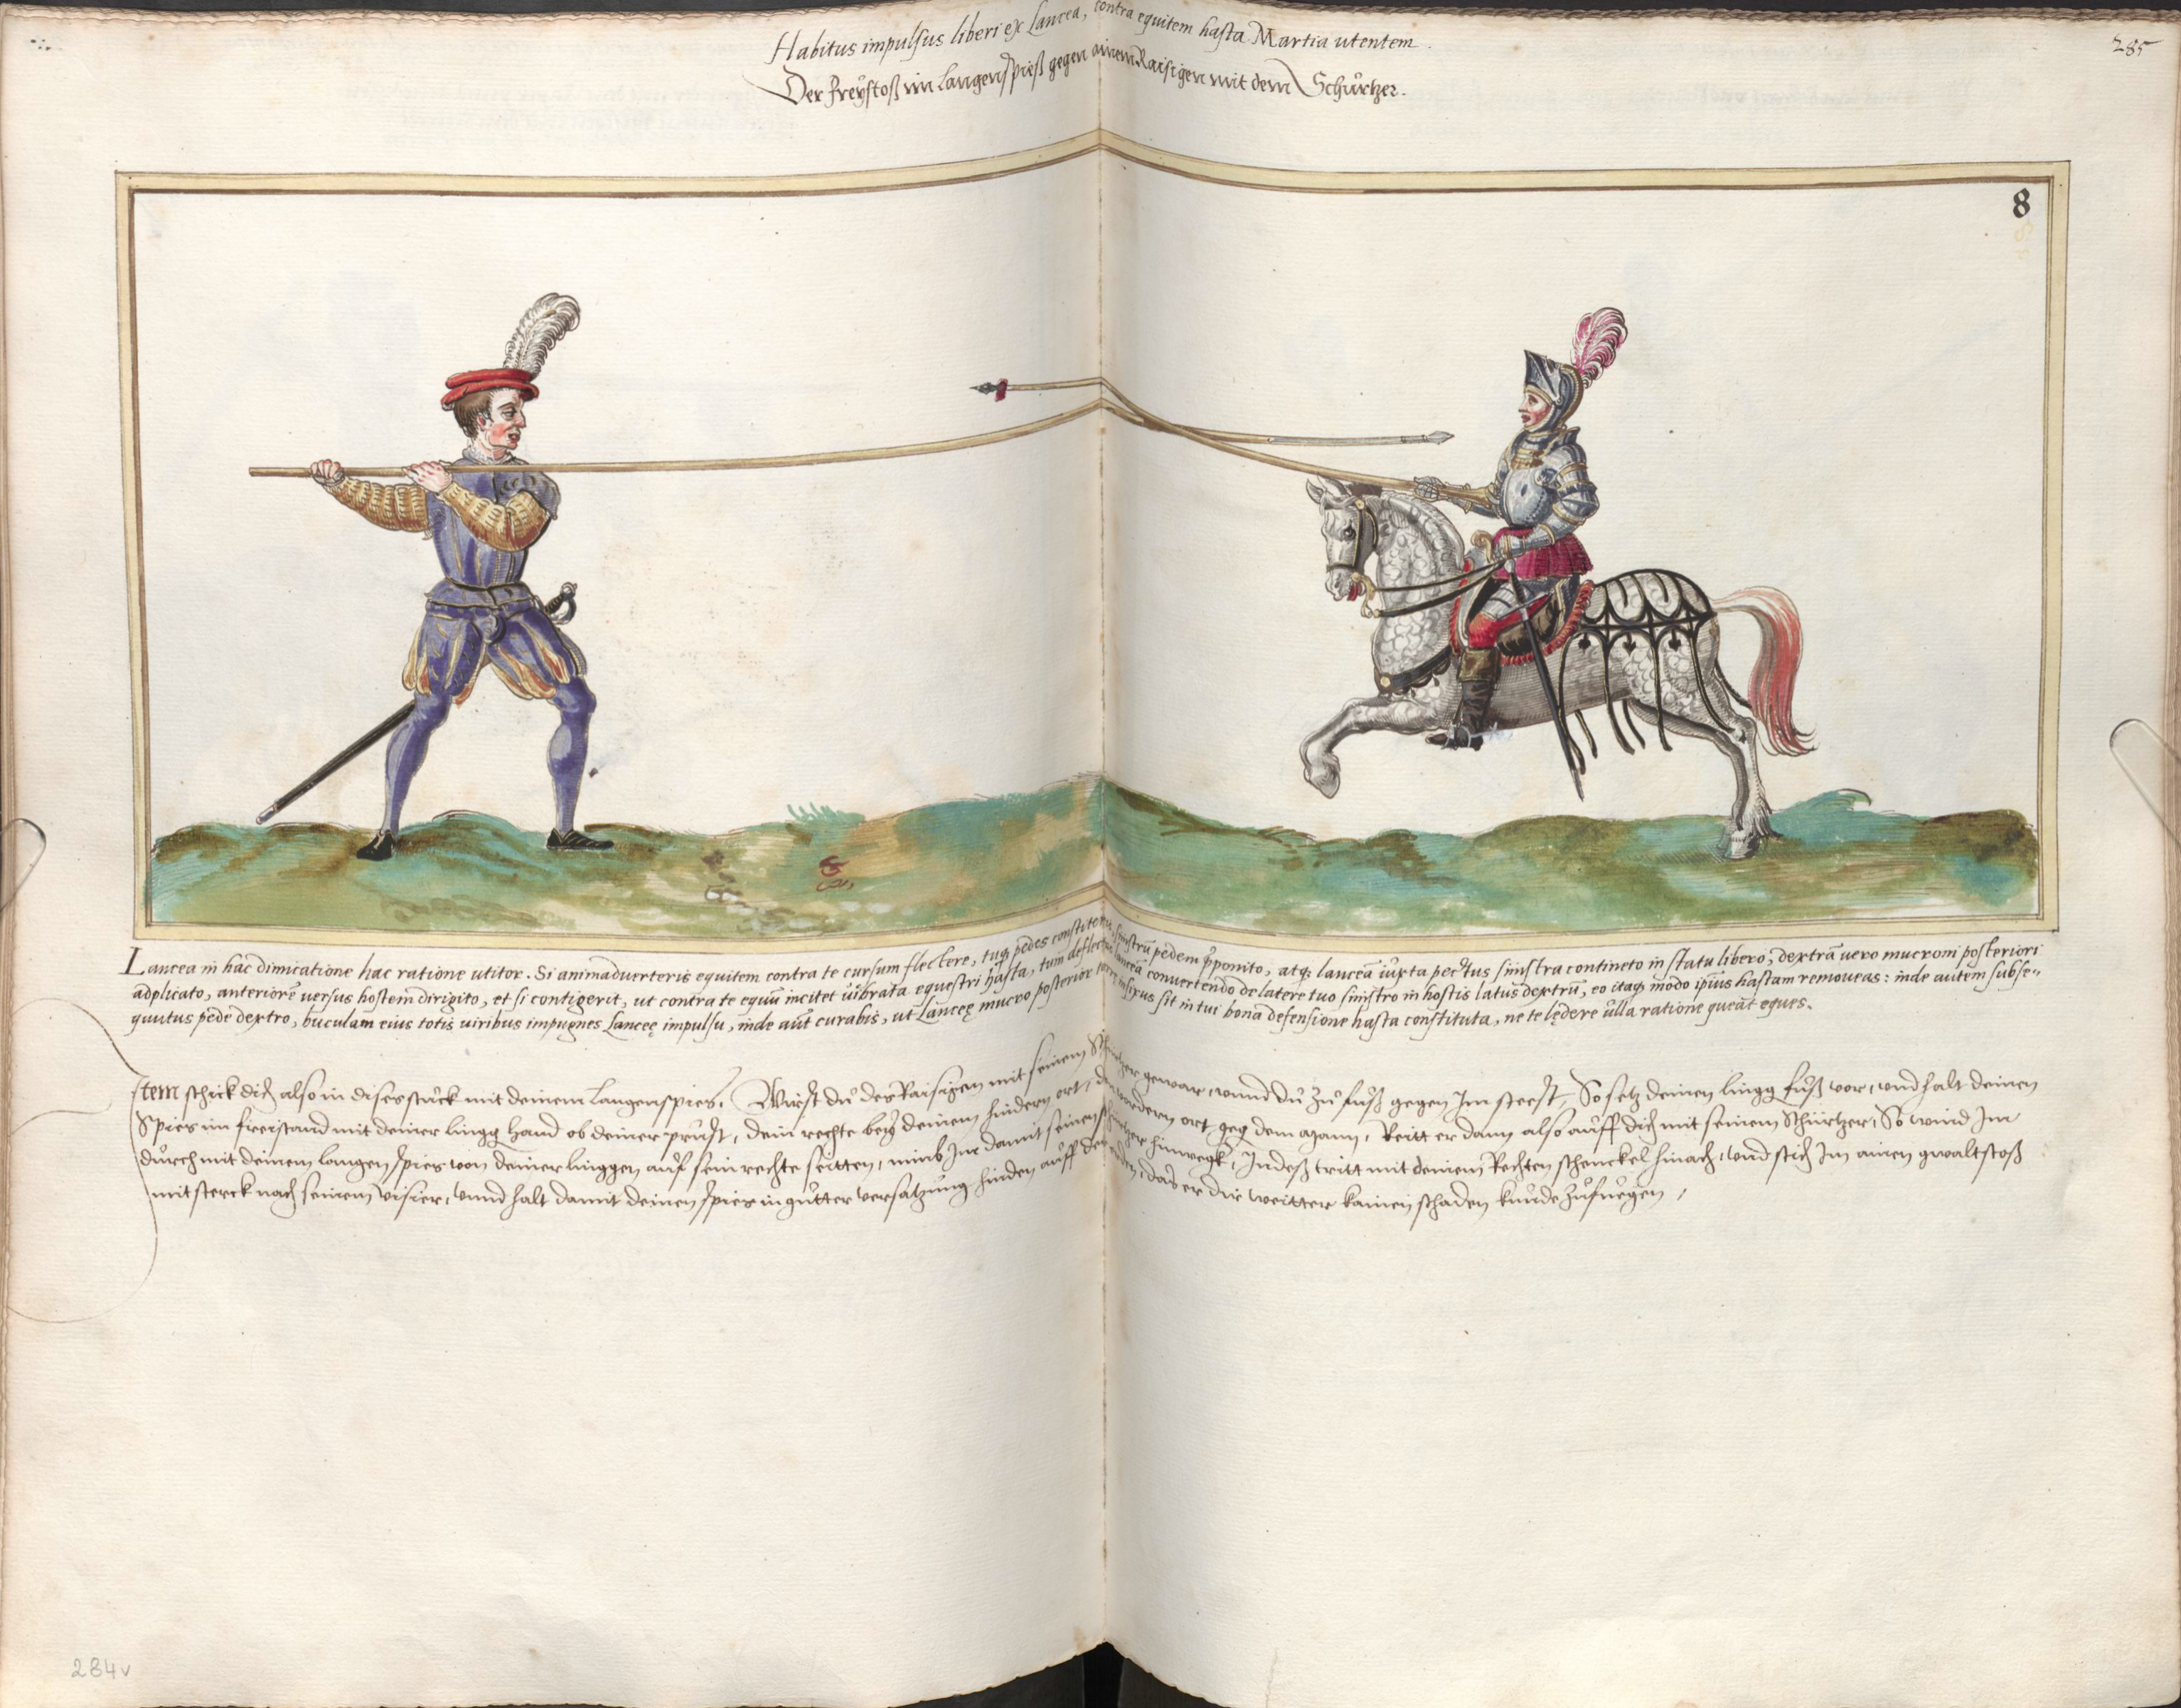 Habitus impulsus liberi ex Lancea, contra equitem hasta Martia utentem.
285
Der Freÿstoß im Langenspieß gegen ainem Raisigen mit dem Schůrtzer.
8
Lancea in hac dimicatione hac ratione utitor. Si animaduerteris equitem contra te cursum flectere, tuq₃ pedes constiteris, sinistrū pedem p̄ponito, atq₃ lanceā iuxta pectus sinistra contineto in statu libero, dextrā uero mucroni posteriori
adplicato, anteriorē uersus hostem dirigito, et si contigerit, ut contra te equū incitet uibrata equestri hasta, tum lanceā conuertendo de latere tuo sinistro in hostis latus dextrū, eo itaq₃ modo ipsius hastam remoueas: inde autem subse-
quutus pede dextro, buculam eius totis uiribus impugnes Lanceę impulsu, inde aūt curabis, ut Lanceę mucro posterior terrę infixus sit in tui bona defensione hasta constituta, ne te lędere ulla ratione queāt eques.
Item schick dich also in dises stuck mit deinem langenspies. Wirst du des Raisigen mit seinem Schürtzer gewar, unnd du zu fuß gegen Im steest, So setz deinen lingg fuß vor, und halt deinen
Spies im freistand mit deiner lingg hand ob deiner prust, dein rechte beÿ deinem hindern ort, den vordern ort geg dem Mann, Reitt er dann also auff dich mit seinem Schürtzer, So wind Im
durch mit deinem langen spies von deiner linggen auf sein rechte seitten, nimb Im damit seinen Schürtzer hinwegk, Indeß tritt mit deinem Rechten schenckel hinach, und stich Im ainen gwaltstoß
mit sterck nach seinem visier, unnd halt damit deinen spies in gutter versatzung hinden auff der erden, das er dir weitter kainen schaden kunde zufuegen,
284v